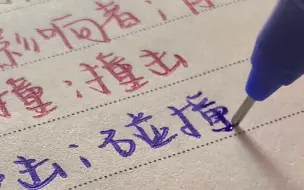 影响者；
撞；撞击
击；碰撞